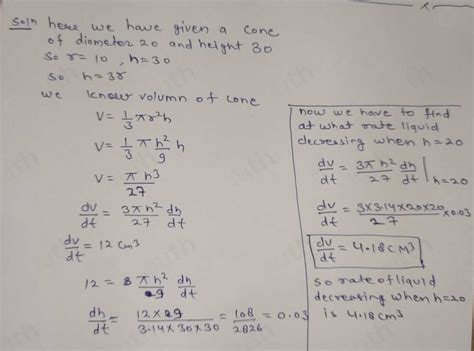 Soln here we have given a cone
of diameter 20 and height 30
so r=10, h=30
so h=3r
we know volumn of cone
V= 1/3 πr²h
V= 1/3 π h²/9 h
V= πh³/27
dv/dt = 3πh²/27 dh/dt
dv/dt = 12 cm³
12 = πh²/9 dh/dt
dh/dt = 12×9/3.14×30×30 = 108/2826 = 0.03
now we have to find
at what rate liquid
decreasing when h=20
dv/dt = 3πh²/27 dh/dt | h=20
dv/dt = 3×3.14×20×20/27 ×0.03
dv/dt = 4.18cm³
so rate of liquid
decreasing when h=20
is 4.18cm³